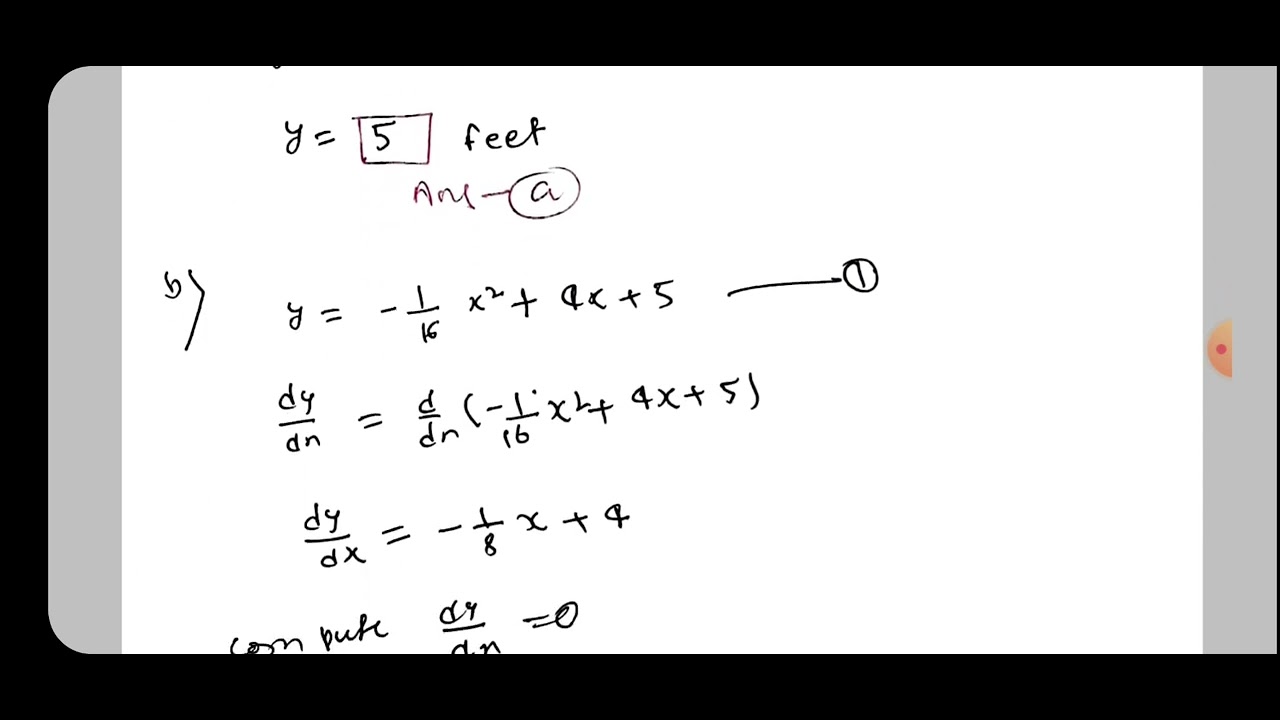 y = 5 feet
Ans - a
b) y = -1/16 x² + 4x + 5 ——— ①
dy/dn = d/dn (-1/16 x² + 4x + 5)
dy/dx = -1/8 x + 4
compute dy/dn = 0